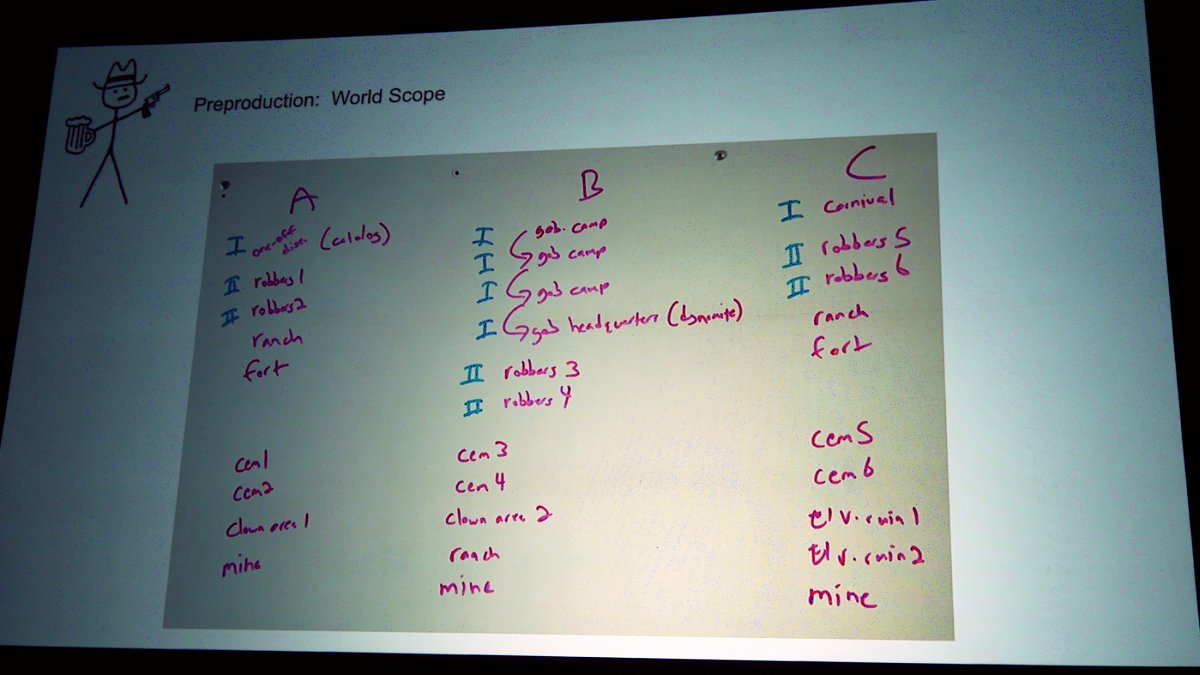 Preproduction: World Scope
A
I one-off (catalog)
II robbers 1
II robbers 2
ranch
fort
cem 1
cem 2
clown area 1
mine
B
I gob. camp
I gob camp
I gob camp
I gob headquarters (dynamite)
II robbers 3
II robbers 4
cem 3
cem 4
clown area 2
ranch
mine
C
I carnival
II robbers 5
II robbers 6
ranch
fort
cem 5
cem 6
El V. ruin 1
El V. ruin 2
mine